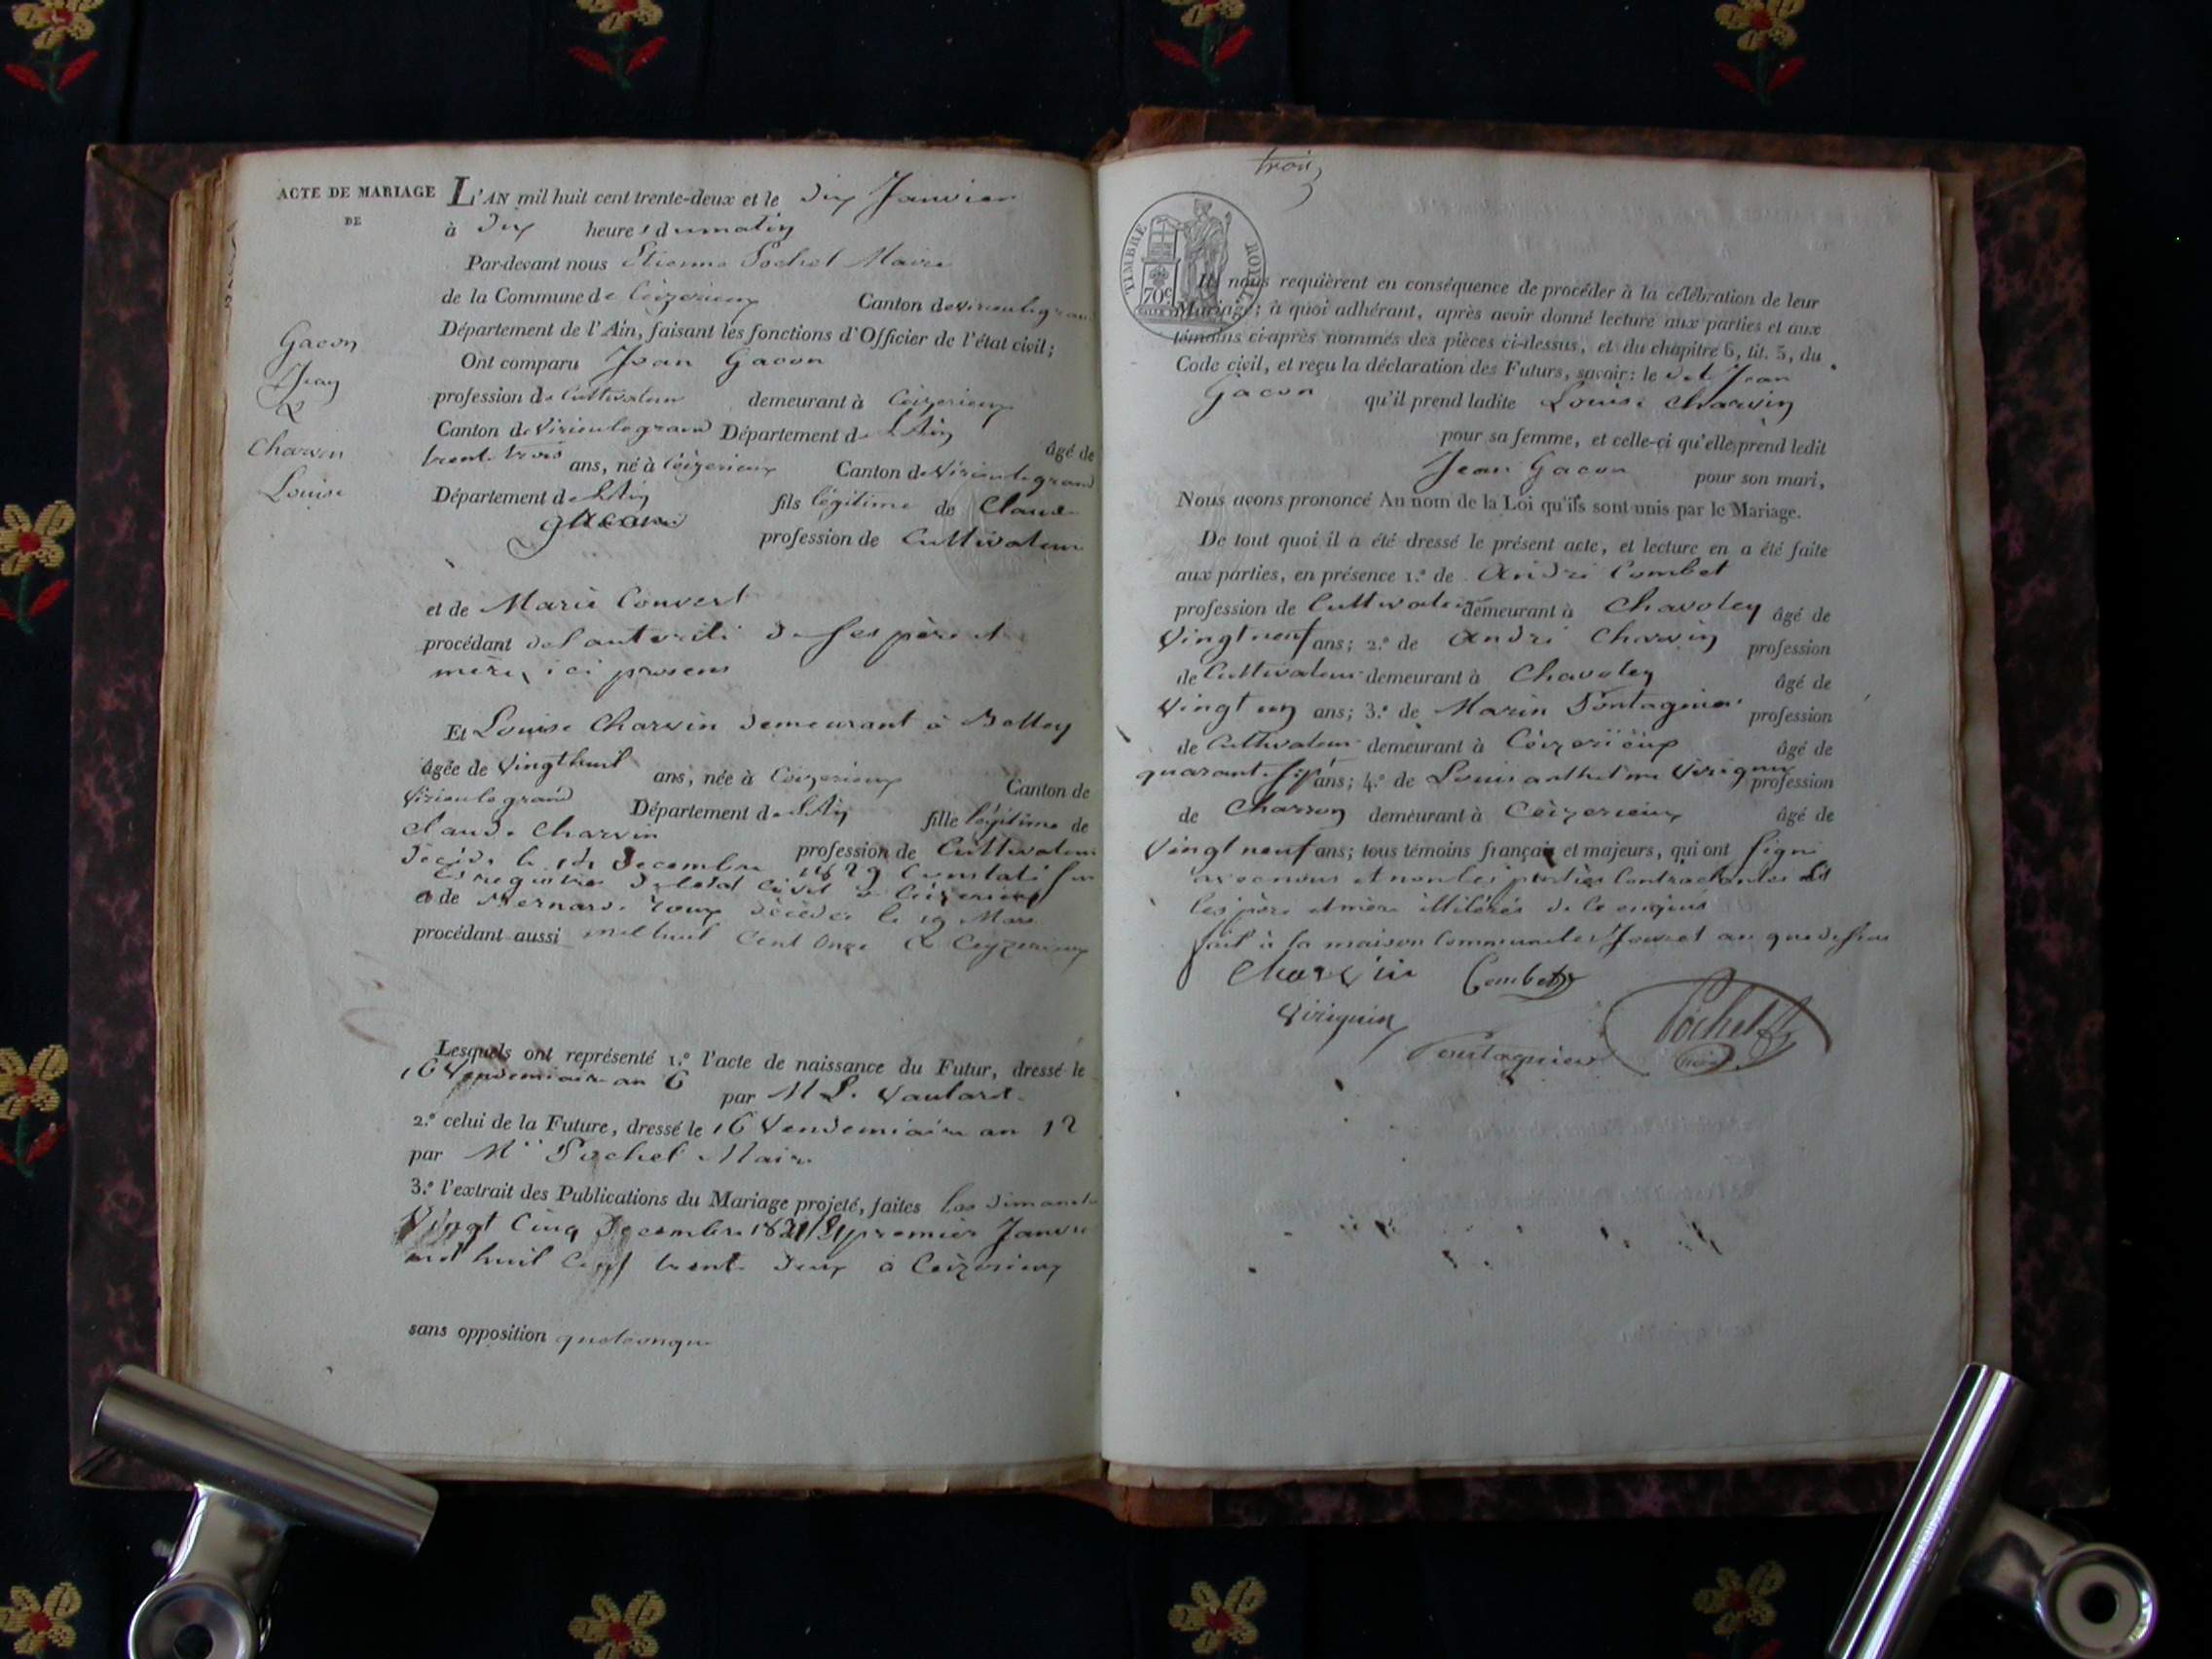 ACTE DE MARIAGE
DE
Gacon
Jean
&
Charvin
Louise
L'AN mil huit cent trente-deux et le dix Janvier
à dix heures du matin
Par-devant nous Etienne Pochet Maire
de la Commune de Ceizerieux Canton de virieulegrand
Département de l'Ain, faisant les fonctions d'Officier de l'état civil;
Ont comparu Jean Gacon
profession de Cultivateur demeurant à Ceizerieux
Canton de Virieulegrand Département de L'Ain âgé de
trente trois ans, né à Ceizerieux Canton de Virieulegrand
Département de L'Ain fils légitime de Claude
gacon profession de Cultivateur
et de Marie Convert
procédant de l'autorité de ses père et
mère, ici presens
Et Louise Charvin demeurant à Belley
âgée de Vingt huit ans, née à Ceizerieux Canton de
Virieulegrand Département de L'Ain fille légitime de
Claude Charvin profession de Cultivateur
décédé le 14 Decembre 1829 Constaté sur
les registres de l'etat civil de Ceizerieux
et de Bernarde roux décédée le 19 Mars
procédant aussi mil huit Cent Onze à Ceyzerieux
Lesquels ont représenté 1.º l'acte de naissance du Futur, dressé le
16 Vendemiaire an 6 par M L. Vaulard
2.º celui de la Future, dressé le 16 Vendemiaire an 12
par Mr Pochet Maire
3.º l'extrait des Publications du Mariage projeté, faites les dimanche
Vingt Cinq Decembre 1831 & premier Janvier
mil huit Cent trente deux à Ceizerieux
sans opposition quelconque
trois
TIMBRE ROYAL
70c
Ils nous requièrent en conséquence de procéder à la célébration de leur
Mariage; à quoi adhérant, après avoir donné lecture aux parties et aux
témoins ci-après nommés des pièces ci-dessus, et du chapitre 6, tit. 5, du
Code civil, et reçu la déclaration des Futurs, savoir: le dit Jean
Gacon qu'il prend ladite Louise Charvin
pour sa femme, et celle-ci qu'elle prend ledit
Jean Gacon pour son mari,
Nous avons prononcé Au nom de la Loi qu'ils sont unis par le Mariage.
De tout quoi il a été dressé le présent acte, et lecture en a été faite
aux parties, en présence 1.º de André Combet
profession de Cultivateur demeurant à Chavoley âgé de
Vingt neuf ans; 2.º de André Charvin profession
de Cultivateur demeurant à Chavoley âgé de
Vingt un ans; 3.º de Marin Pontagnier profession
de Cultivateur demeurant à Ceizerieux âgé de
quarante six ans; 4.º de Louis anthelme Viriguin profession
de Charron demeurant à Ceizerieux âgé de
Vingt neuf ans; tous témoins français et majeurs, qui ont signé
avec nous et non les parties Contractantes et
les père et mère illitérés de ce enquis
fait à la maison Commune les Jour et an que dessus
Charvin Combet
Viriguin
Pontagnier Pochet